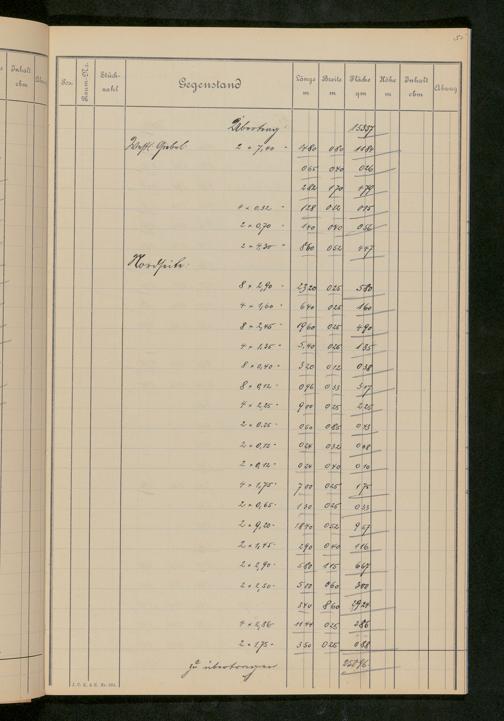 51
Pos. Raum-No. Stückzahl Gegenstand Länge m Breite m Fläche qm Höhe m Inhalt cbm Abzug
Übertrag: 15337
Westl. Giebel 2 × 7,40 = 1480 080 1184
065 040 026
282 170 479
4 × 0,32 = 128 052
2 × 0,70 = 140 040 056
2 × 4,30 = 860 052 447
Nordseite:
8 × 2,90 = 2320 025 580
4 × 1,60 = 640 025 160
8 × 2,45 = 1960 025 490
4 × 1,35 = 5,40 025 135
8 × 0,40 = 320 012 038
8 × 0,12 = 096 033 317
4 × 2,25 = 900 025 225
2 × 0,25 = 050 085 043
2 × 0,12 = 024 032 008
2 × 0,12 = 024 040 010
4 × 1,75 = 700 025 175
2 × 0,65 = 130 025 033
2 × 9,20 = 1840 052 957
2 × 1,45 = 290 040 116
2 × 2,90 = 580 115 667
2 × 2,50 = 500 060 300
340 860 2924
4 × 2,86 = 1144 025 286
2 × 1,75 = 350 025 088
zu übertragen